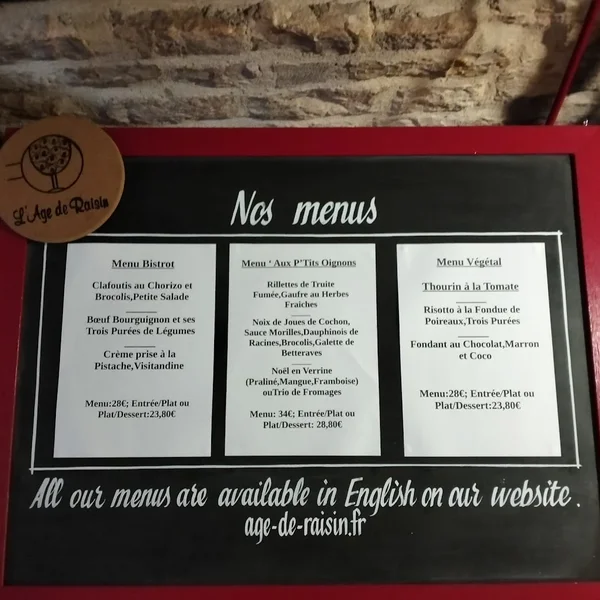 L'Age de Raisin
Nos menus
Menu Bistrot
Clafoutis au Chorizo et
Brocolis,Petite Salade
Bœuf Bourguignon et ses
Trois Purées de Légumes
Crème prise à la
Pistache,Visitandine
Menu:28€; Entrée/Plat ou
Plat/Dessert:23,80€
Menu ' Aux P'Tits Oignons
Rillettes de Truite
Fumée,Gaufre au Herbes
Fraiches
Noix de Joues de Cochon,
Sauce Morilles,Dauphinois de
Racines,Brocolis,Galette de
Betteraves
Noël en Verrine
(Praliné,Mangue,Framboise)
ouTrio de Fromages
Menu: 34€; Entrée/Plat ou
Plat/Dessert: 28,80€
Menu Végétal
Thourin à la Tomate
Risotto à la Fondue de
Poireaux,Trois Purées
Fondant au Chocolat,Marron
et Coco
Menu:28€; Entrée/Plat ou
Plat/Dessert:23,80€
All our menus are available in English on our website.
age-de-raisin.fr